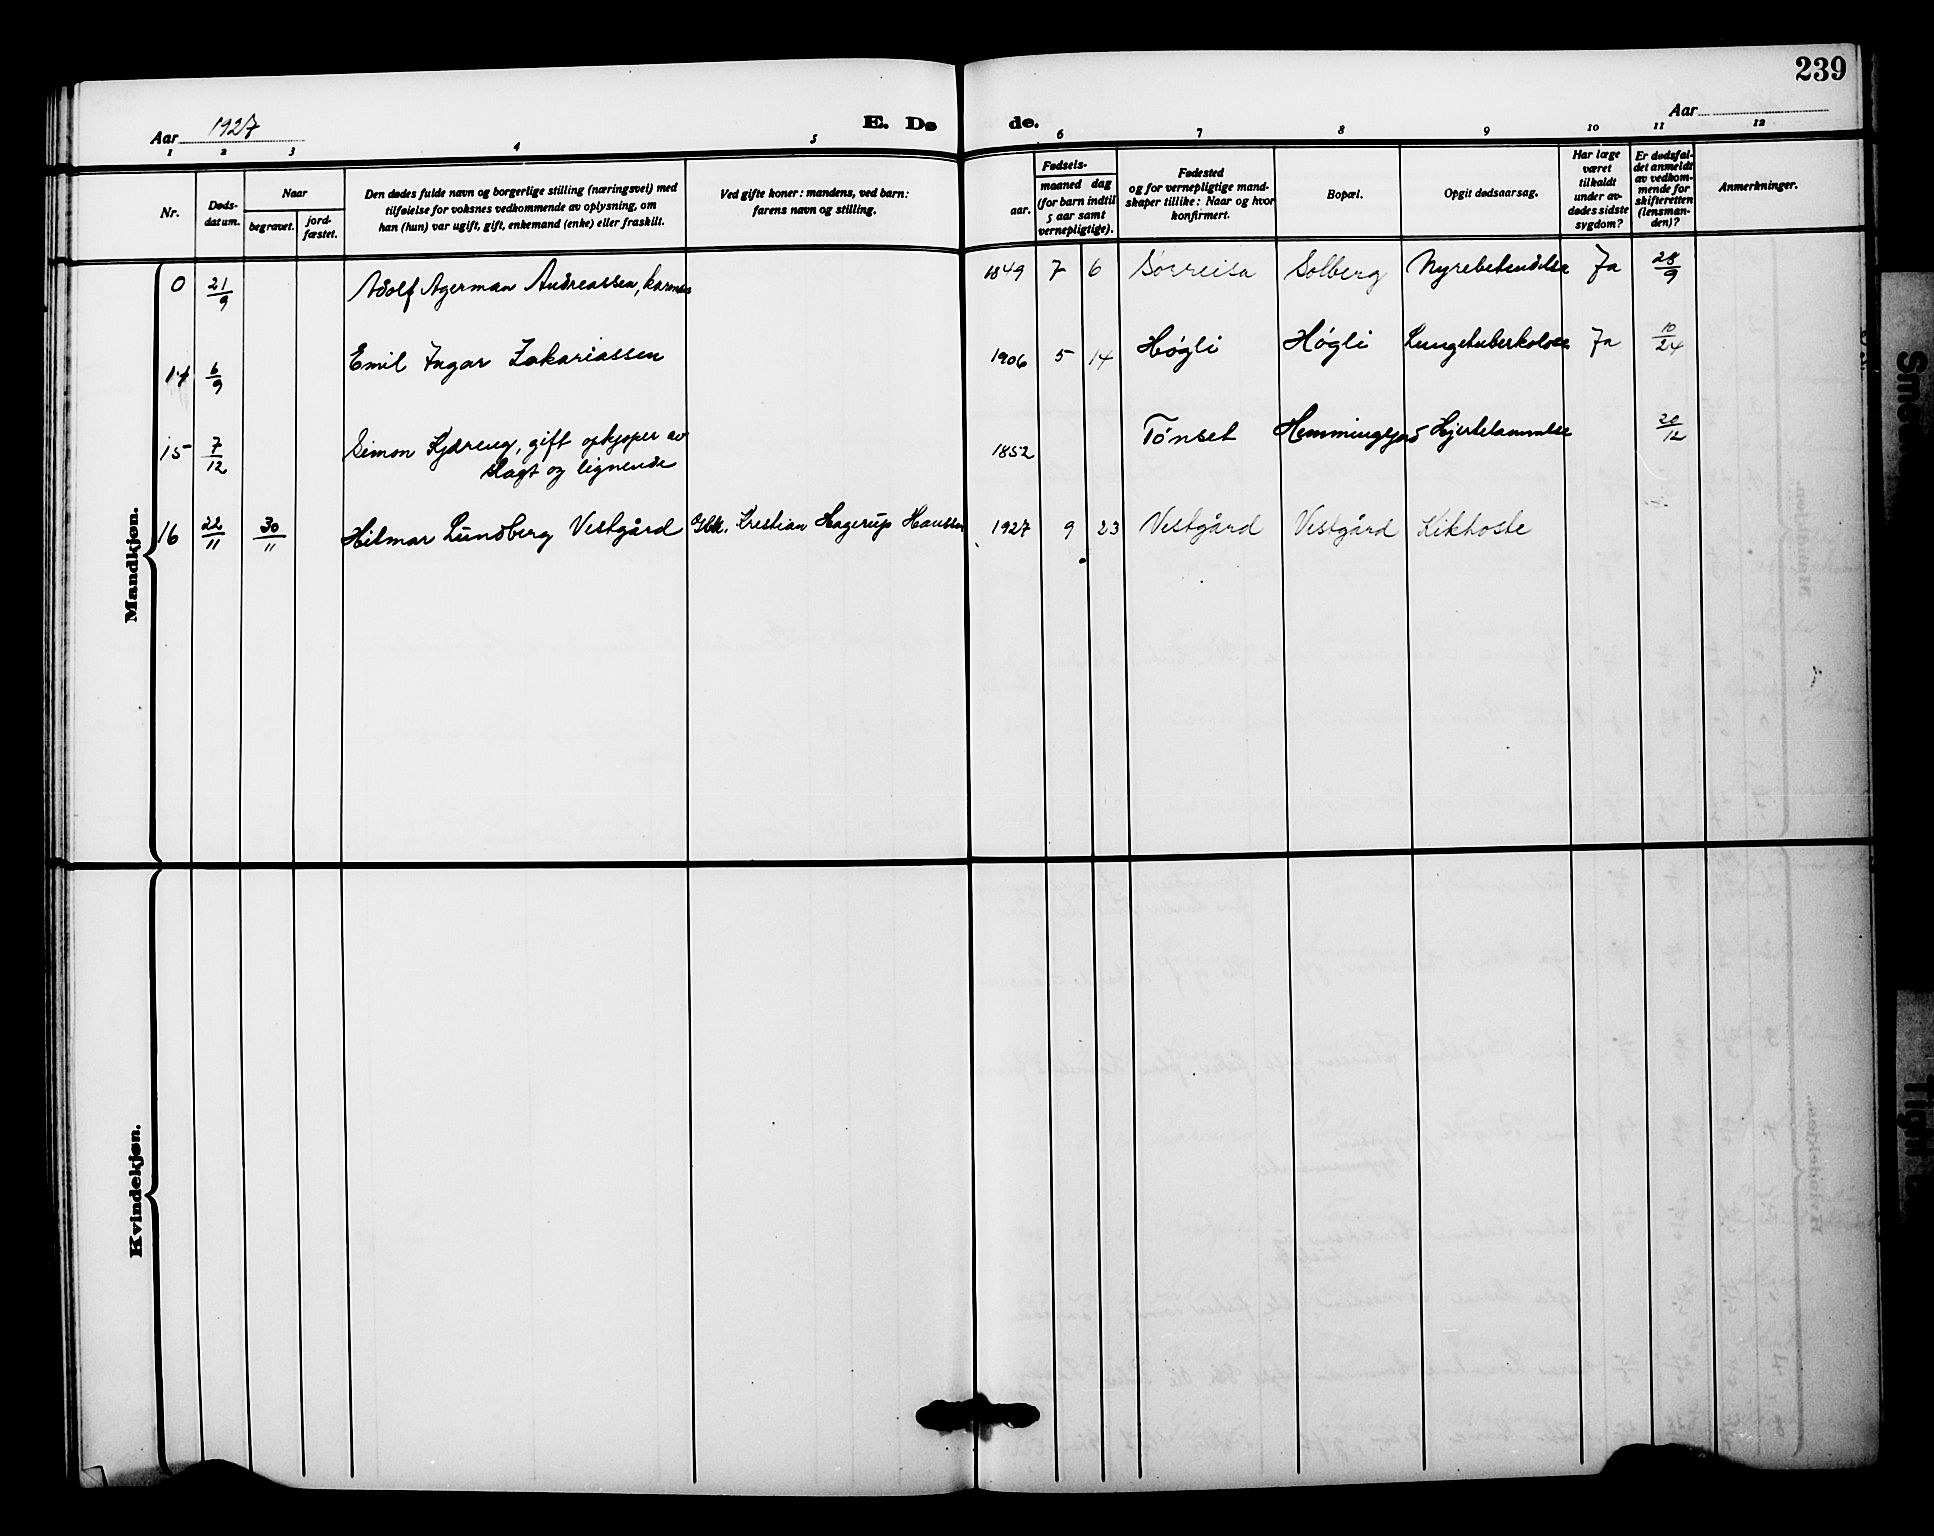 239
Aar 1927
E. Dø
de.
Aar
1 2 3 4 5
6 7 8 9 10 11 12
Nr.
Døds-
datum.
Naar
begravet.
jord-
fæstet.
Den dødes fulde navn og borgerlige stilling (næringsvei) med
tilføielse for voksnes vedkommende av oplysning, om
han (hun) var ugift, gift, enkemand (enke) eller fraskilt.
Ved gifte koner: mandens, ved barn:
farens navn og stilling.
Fødsels-
aar.
maaned dag
(for barn indtil
5 aar samt
vernepligtige).
Fødested
og for vernepligtige mand-
skaper tillike: Naar og hvor
konfirmert.
Bopæl.
Opgit dødsaarsag.
Har læge
været
tilkaldt
under av-
dødes sidste
sygdom?
Er dødsfal-
det anmeldt
av vedkom-
mende for
skifteretten
(lensman-
den)?
Anmerkninger.
Mandkjøn.
0 21/9 Adolf Agerman Andreassen, 1849 7 6 Sørreisa Solberg Nyrebetendelse Ja 28/9
14 6/9 Emil Ingar Zakariassen 1906 5 14 Høgli Høgli Lungetuberkulose Ja 10/24
15 7/12 Simon Kjæreng, gift opkjøper av
slagt og lignende 1852 Tønset Hemmingsjord Hjertelammelse 20/12
16 22/11 30/11 Hilmar Lundberg Vestgård Gbr. Kristian Hagerup Hanssen 1927 9 23 Vestgård Vestgård Kikhoste
Kvindekjøn.